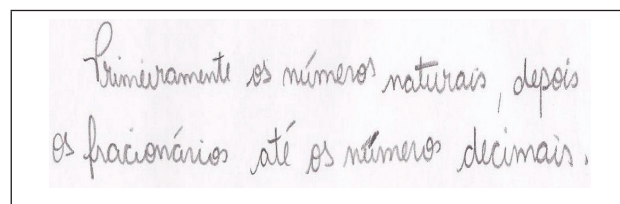 Primeiramente os números naturais, depois
os fracionários até os números decimais.